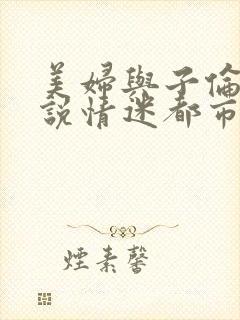 美婦與子倫
說情迷都市
煙素馨